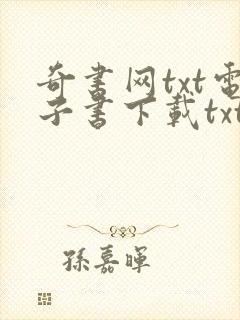 奇書网txt電
子書下載txt
孫嘉暉